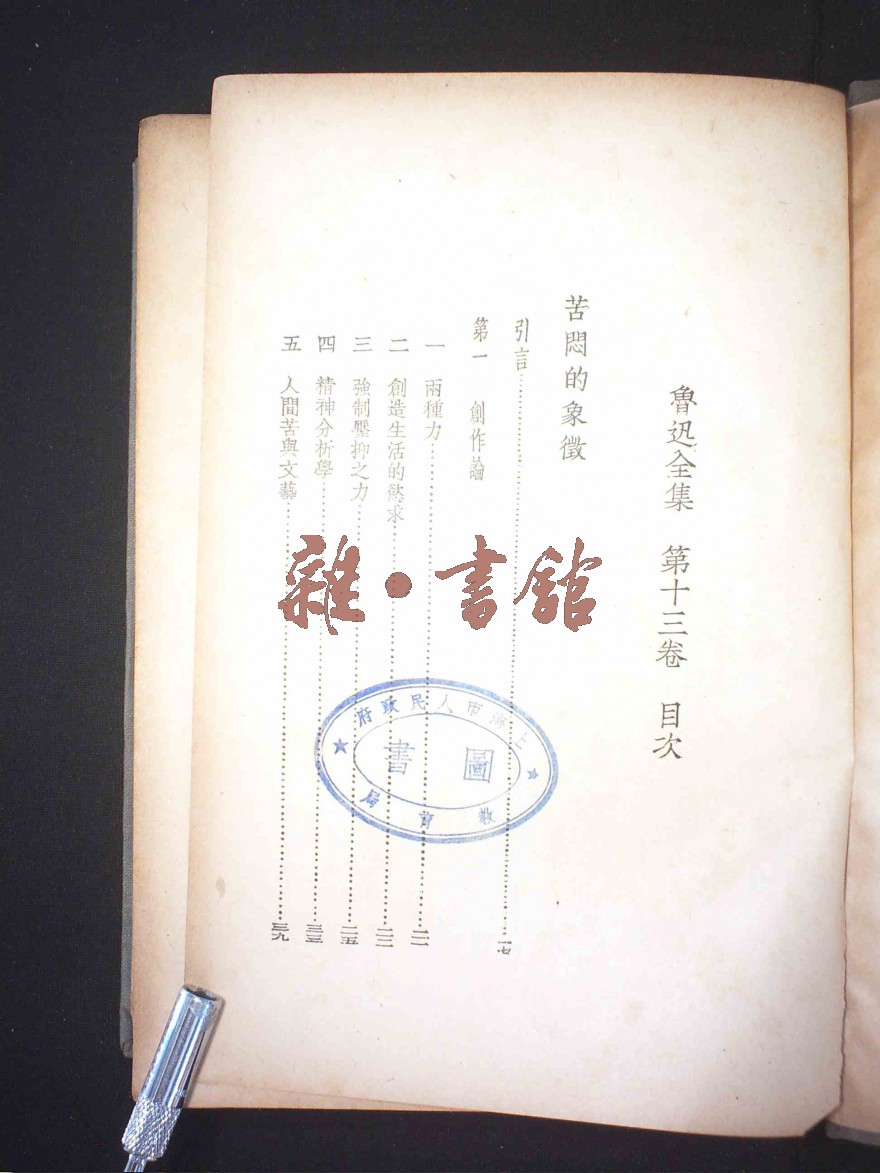 魯迅全集　第十三卷　目次
苦悶的象徵
引言……一七
第一　創作論
一　兩種力……二一
二　創造生活的慾求……
三　強制壓抑之力……二五
四　精神分析學……
五　人間苦與文藝……三九
雜•書館
上海市人民政府
圖書
教育局